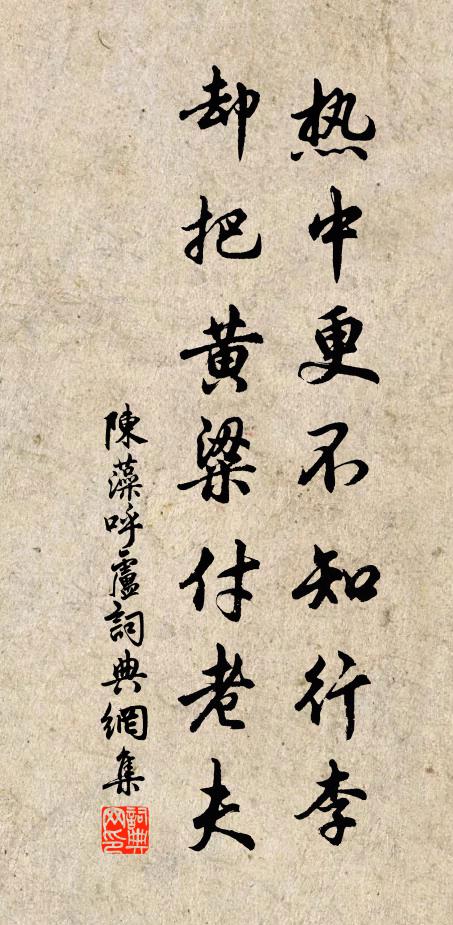 热中更不知行李
却把黄粱付老夫
陳藻呼盧詞典網集
詞典網印